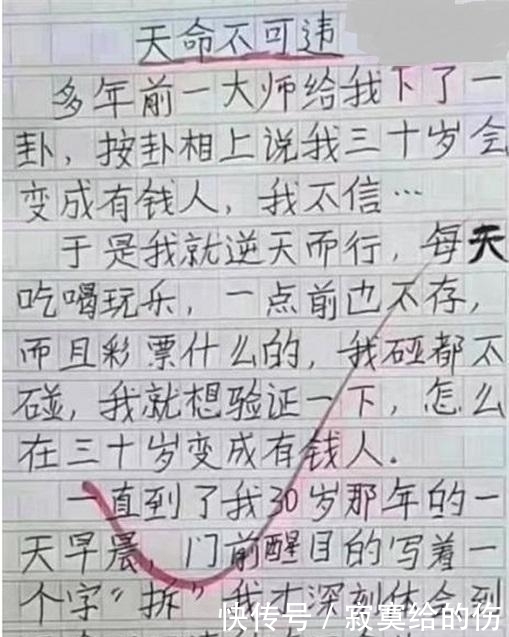 天命不可违
多年前一大师给我下了一
卦，按卦相上说我三十岁会
变成有钱人，我不信…
于是我就逆天而行，每天
吃喝玩乐，一点前也不存，
而且彩票什么的，我碰都不
碰，我就想验证一下，怎么
在三十岁变成有钱人．
一直到了我30岁那年的一
天早晨，门前醒目的写着一
个字“拆”我才深刻体会到
快传号/寂寞给的伤